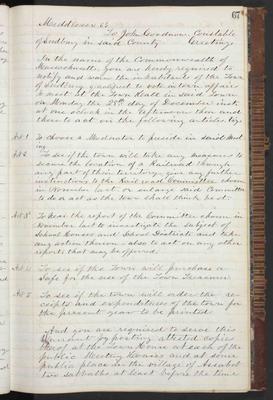 67
Middlesex SS.
To John Goodnow Constable
of Sudbury in said County Greeting.
In the name of the Commonwealth of
Massachusetts, you are hereby required to
notify and warn the inhabitants of the Town
of Sudbury qualified to vote in town affairs
to meet at the Town Hall in said Town
on Monday the 28th day of December inst
at one oclock in the afternoon then and
there to act on the following articles viz
Art 1 To choose a Moderator to preside in said Meet
ing
Art 2 To see if the town will take any measures to
secure the location of a Railroad through
any part of their territory, give any further
instructions to the Railroad Committee chosen
in November last or enlarge said Committee
to do or act as the town shall think best.
Art 3 To hear the report of the Committee chosen in
November last to investigate the subject of
School Houses and School Districts and take
any action thereon - also to act on any other
reports that may be offered.
Art 4 To see if the Town will purchase a
Safe for the use of the Town Treasurer
Art 5 To see if the town will order the re
ceipts and expenditures of the town for
the present year to be printed.
And you are required to serve this
Warrant by posting attested copies
thereof at the Town House at each of the
public Meeting Houses and at some
public place in the village of Assabet
two sabbaths at least before the time